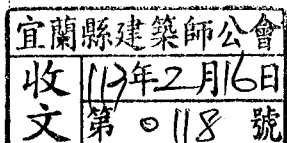 宜蘭縣建築師公會
收文
113年2月16日
第0118號